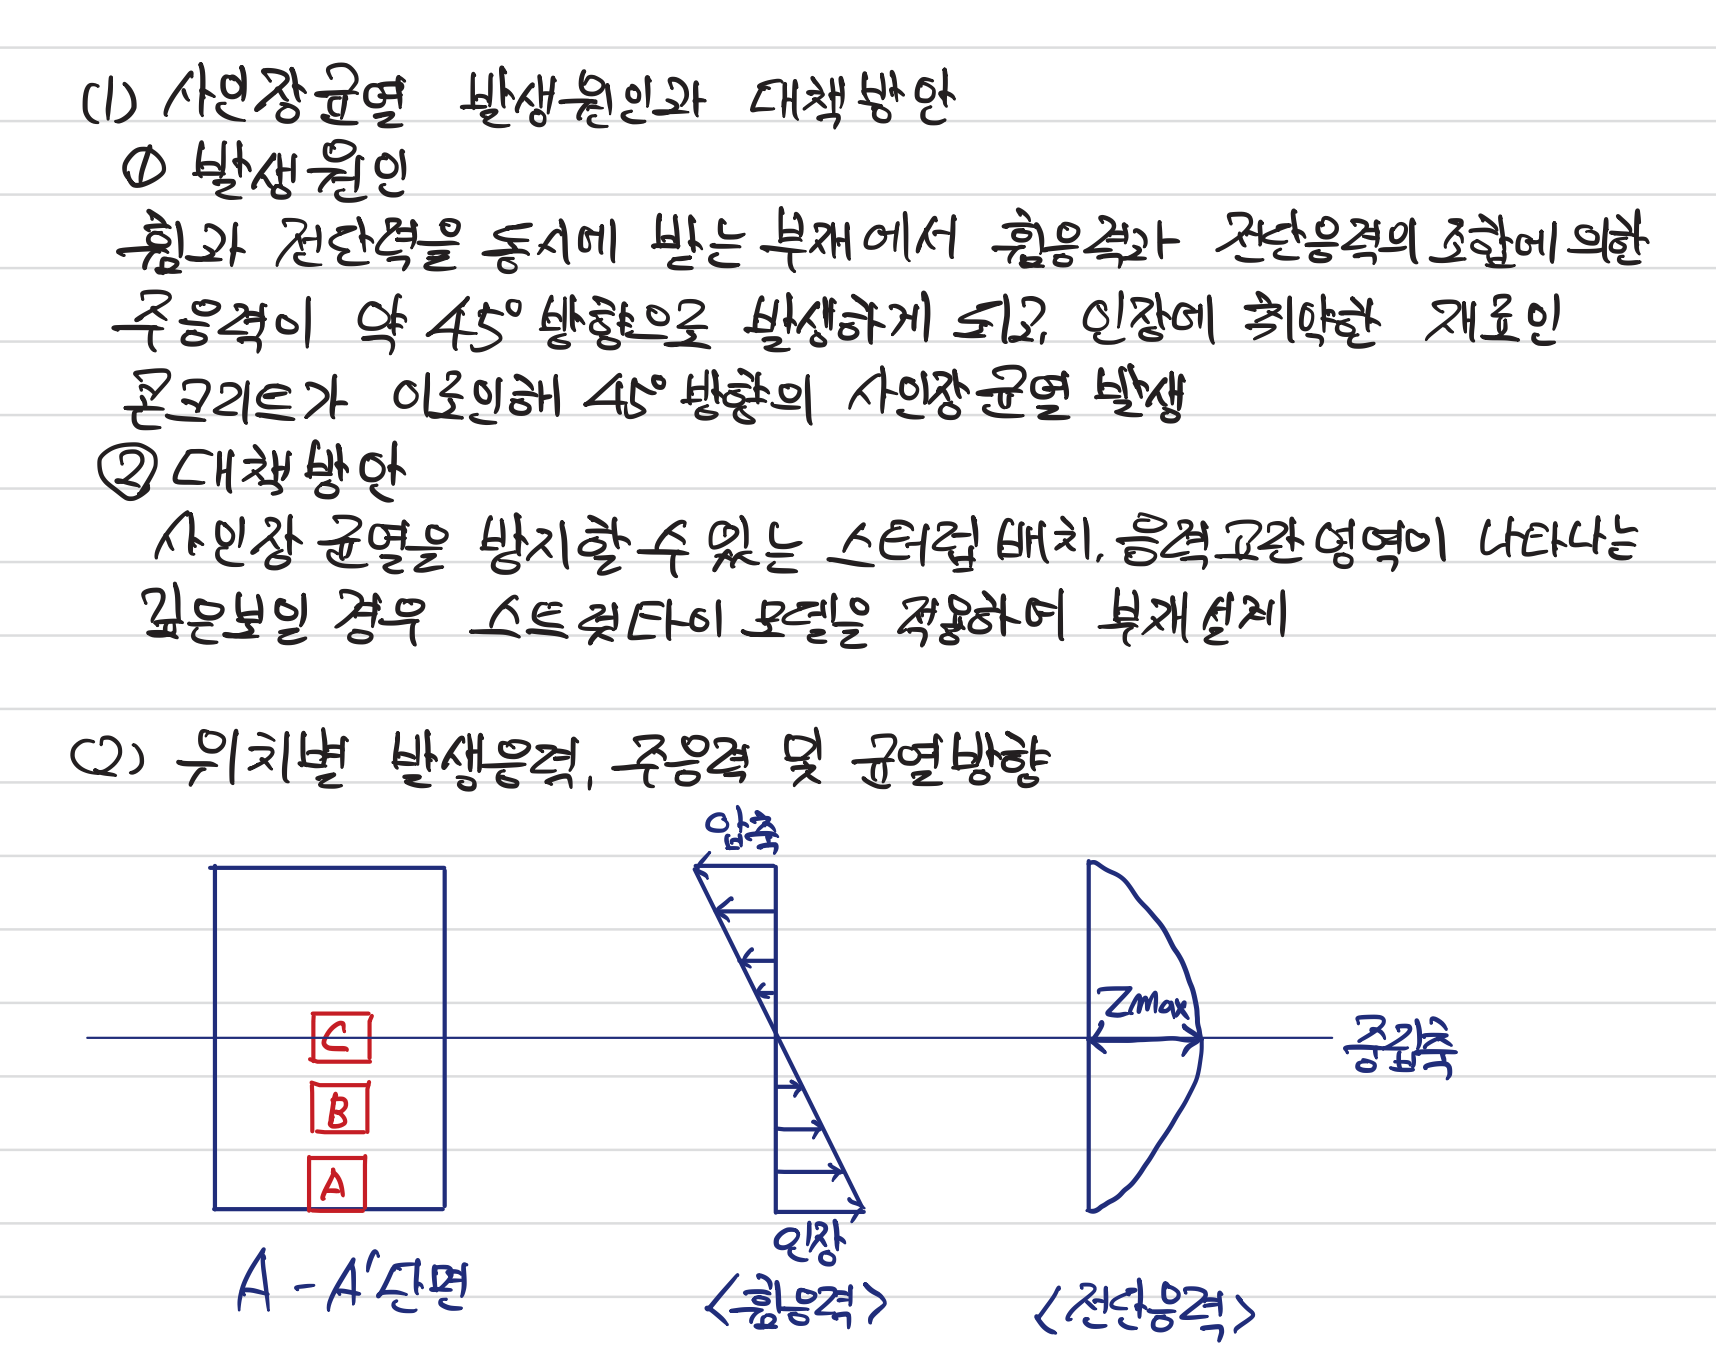 (1) 사인장균열 발생원인과 대책방안
① 발생원인
휨과 전단력을 동시에 받는 부재에서 휨응력과 전단응력의 조합에 의한
주응력이 약 45° 방향으로 발생하게 되고, 인장에 취약한 재료인
콘크리트가 이로인해 45° 방향의 사인장균열 발생
② 대책방안
사인장 균열을 방지할 수 있는 스터럽 배치, 응력교란영역이 나타나는
깊은보일 경우 스트럿타이 모델을 적용하여 부재설계
(2) 위치별 발생응력, 주응력 및 균열방향
압축
C
B
A
τmax
중립축
인장
A - A' 단면
<휨응력>
<전단응력>